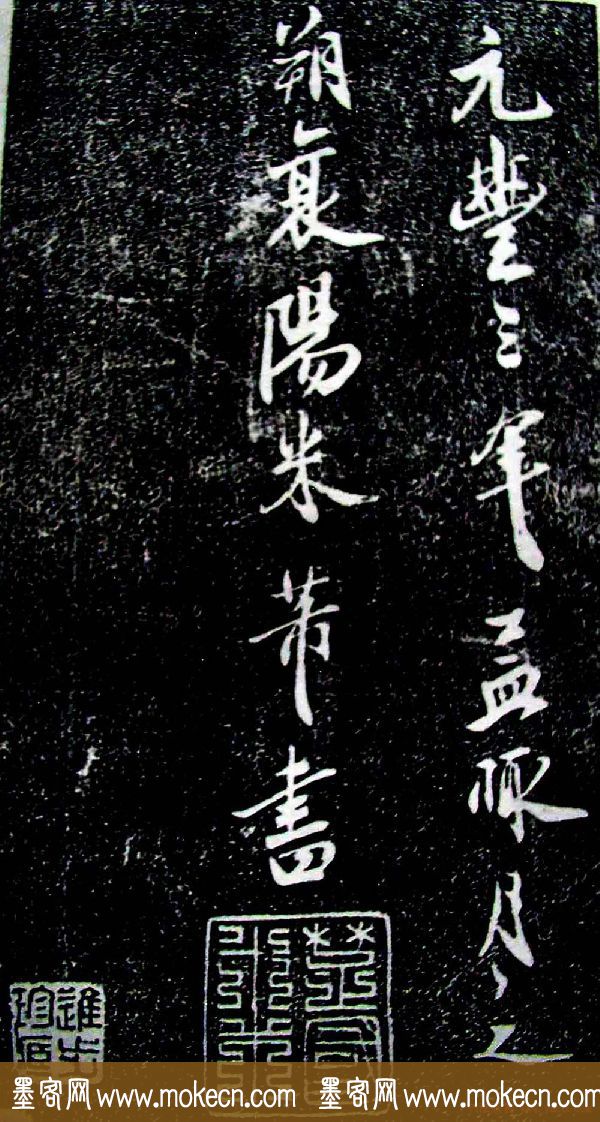 元豐三年孟陬月之
朔襄陽米芾書
墨客网 www.mokecn.com 墨客网 www.mokecn.com